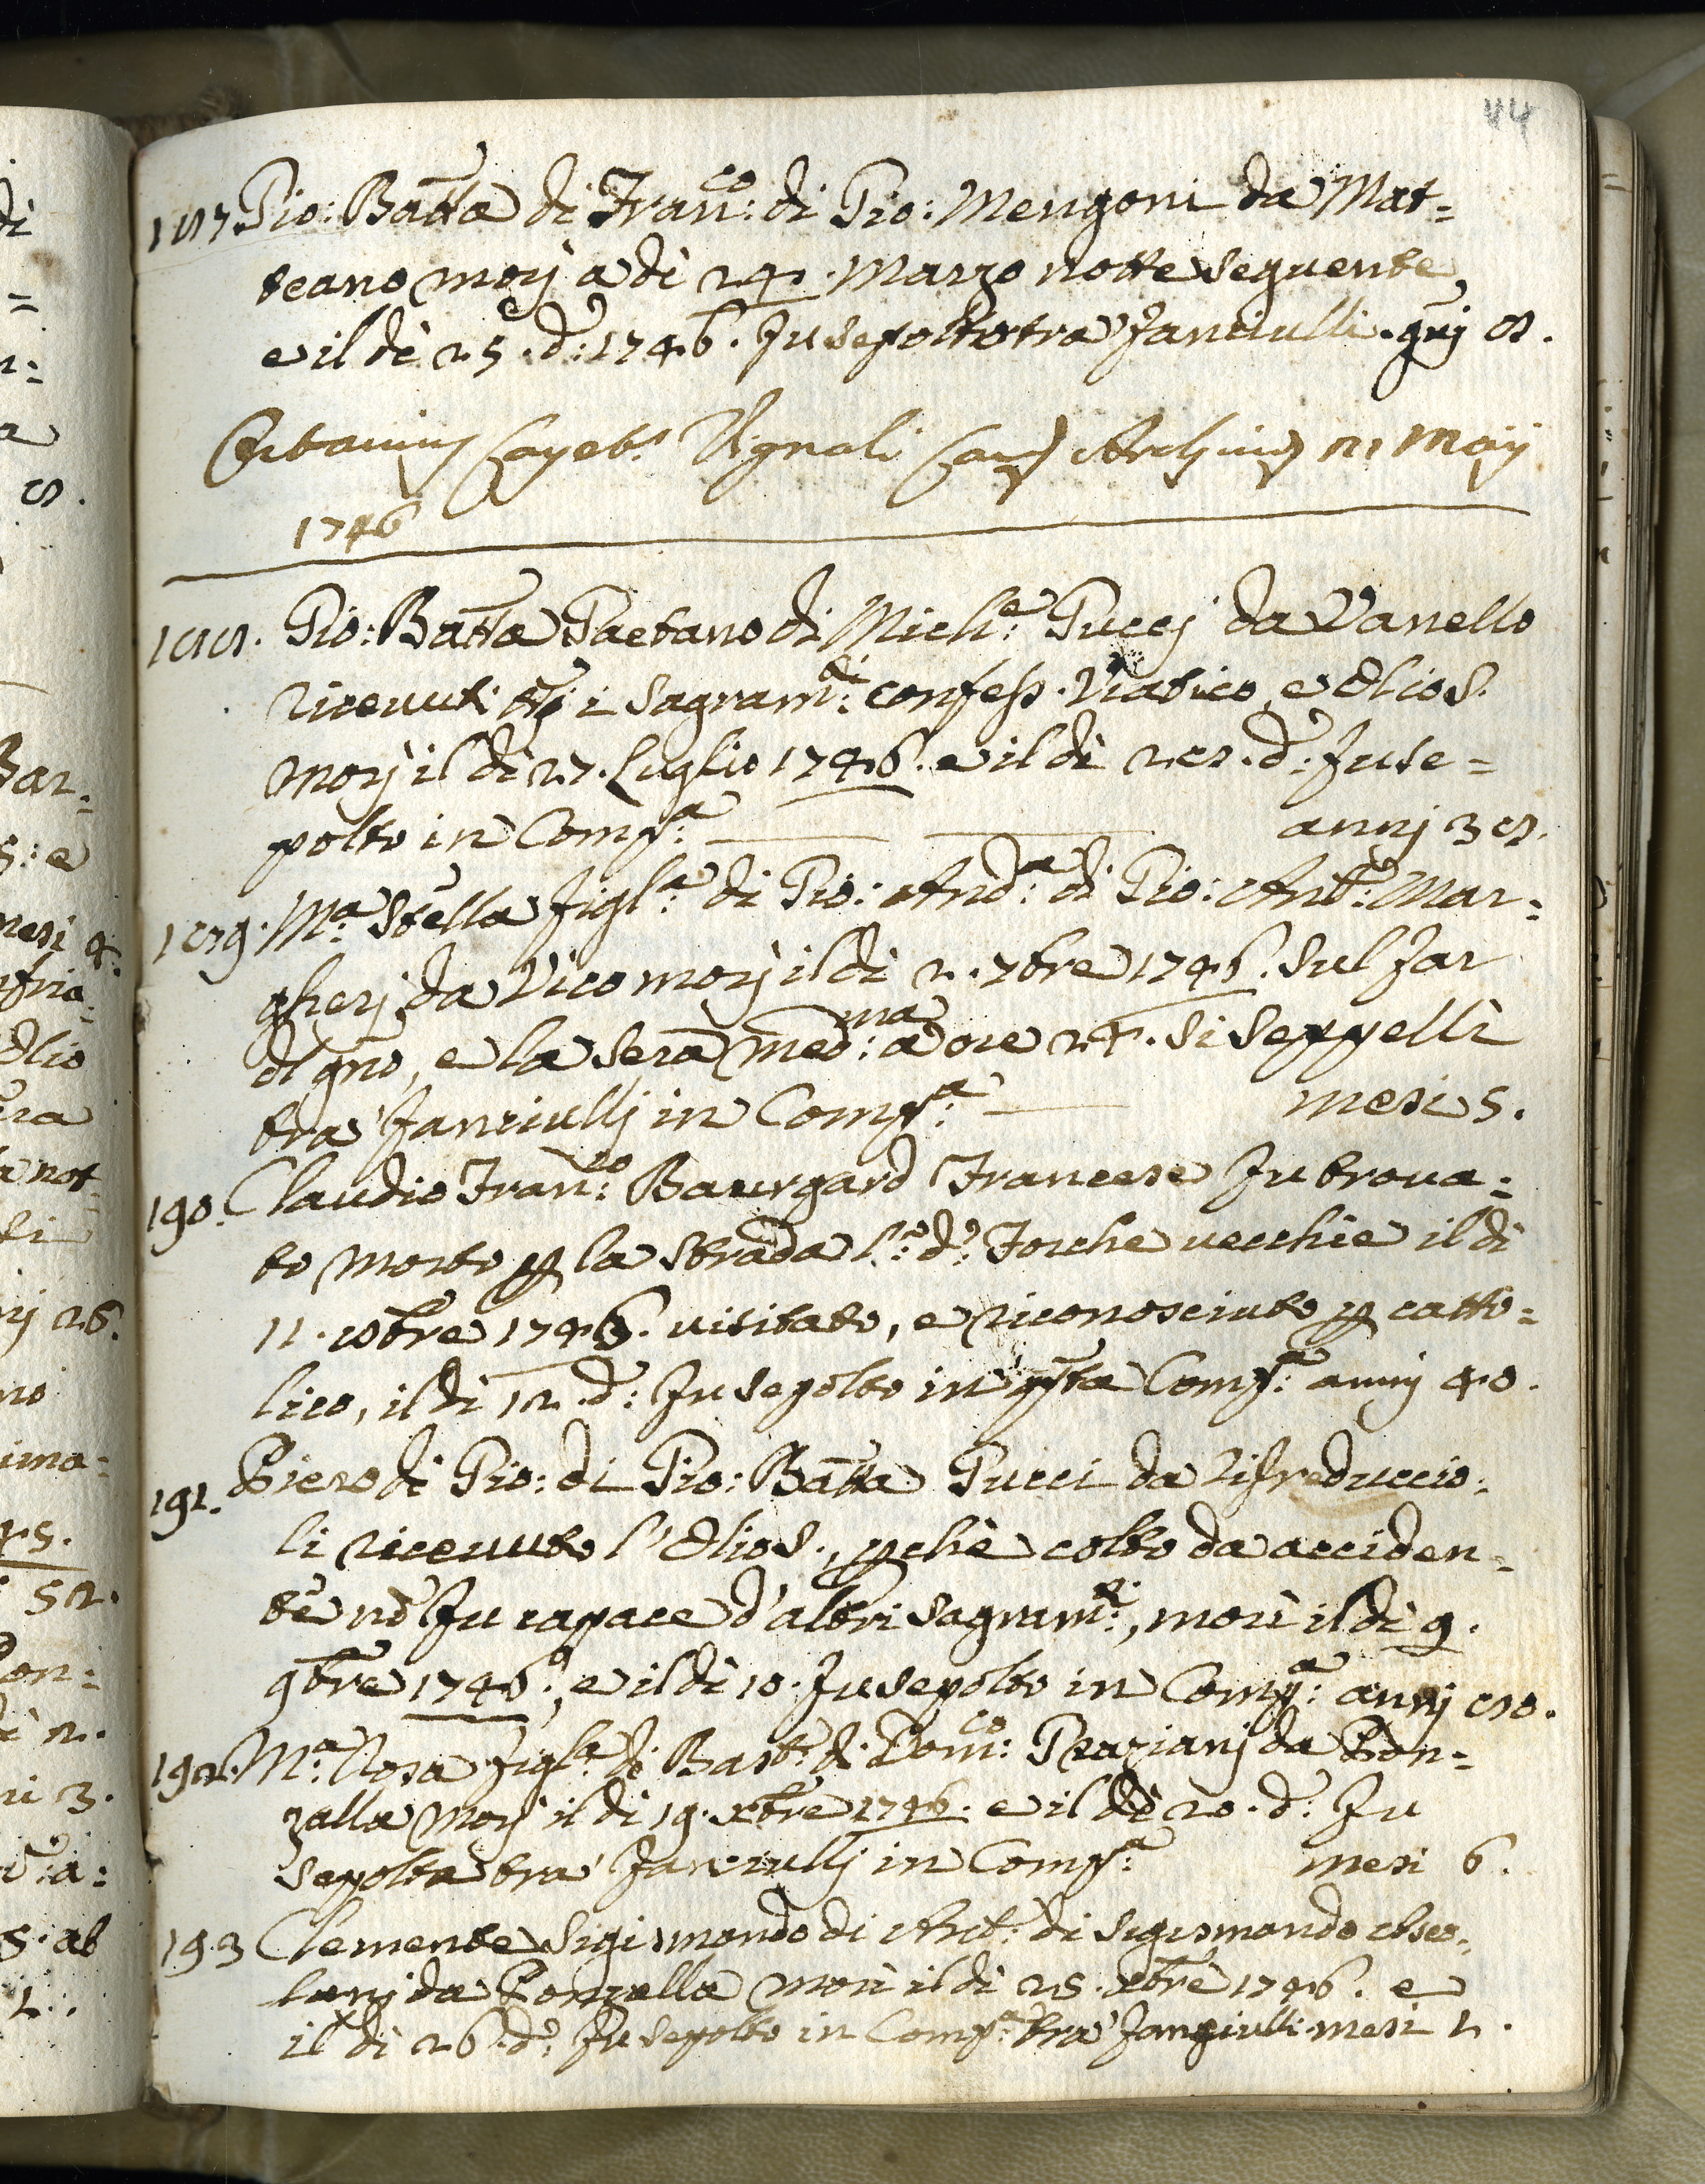 44
187. Gio: Batta di Fran:co di Gio: Mengoni da Mat=
teano morj a dì 24. Marzo notte seguente,
e il dì 25. d:o 1746. fu sepolto tra' fanciulli. gnj 8.
Octavius Cayet.s Vignali Can.s Archius 21 Maij
1746
188. Gio: Batta Gaetano di Mich:e Puccj da Vanello
ricevuti tti i Sagram:ti confess. Viatico, e Olio S.
morj il dì 27. Luglio 1746. e il dì 28. d:o fu se=
polto in Comp:a annj 38.
189. M:a Stella figl:a di Gio: And:a di Gio: Ant:o Mar=
gherj da Vico morj il dì 2. 7bre 1746. sul far
dl gno, e la sera med:ma a ore 24. si seppellì
tra' fanciullj in Comp:a mesi 5.
190. Claudio Fran:co Baurgard Francese fu trova=
to morto p la strada l:o d:o Forche vecchie il dì
11. 8bre 1746. visitato, e riconosciuto p catto=
lico, il dì 12. d:o fu sepolto in qsta Comp:a annj 40.
191. Piero di Gio: di Gio: Batta Pucci da Rifreduccio=
li ricevuto l'Olio S., pchè colto da acciden=
te nō fu capace d'altri Sagram:ti, morì il dì 9.
9bre 1746., e il dì 10. fu sepolto in Comp:a annj 80.
192. M:a Rosa figl:a di Bast:o di Dom:co Grazianj da Pon=
zalla morj il dì 19. Xbre 1746. e il dì 20. d:o fu
sepolta tra' fanciullj in Comp:a mesi 6.
193 Clemente Sigismondo di Ant:o di Sigismondo
da Ponzalla morì il dì 25. Xbre 1746. e
il dì 26. d:o fu sepolto in Comp:a tra' fanciulli mesi 2.